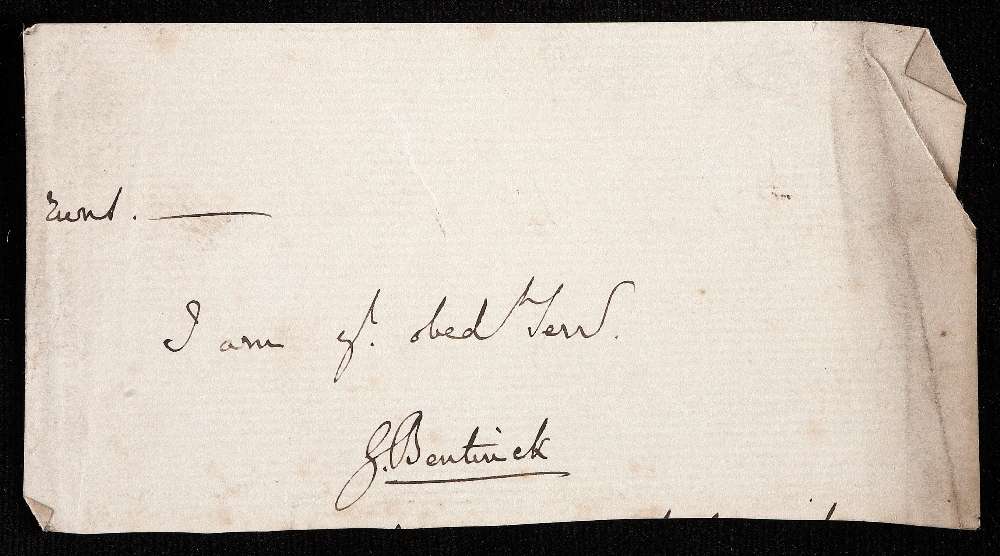 I am yr. obedt Servt.
G. Bentinck